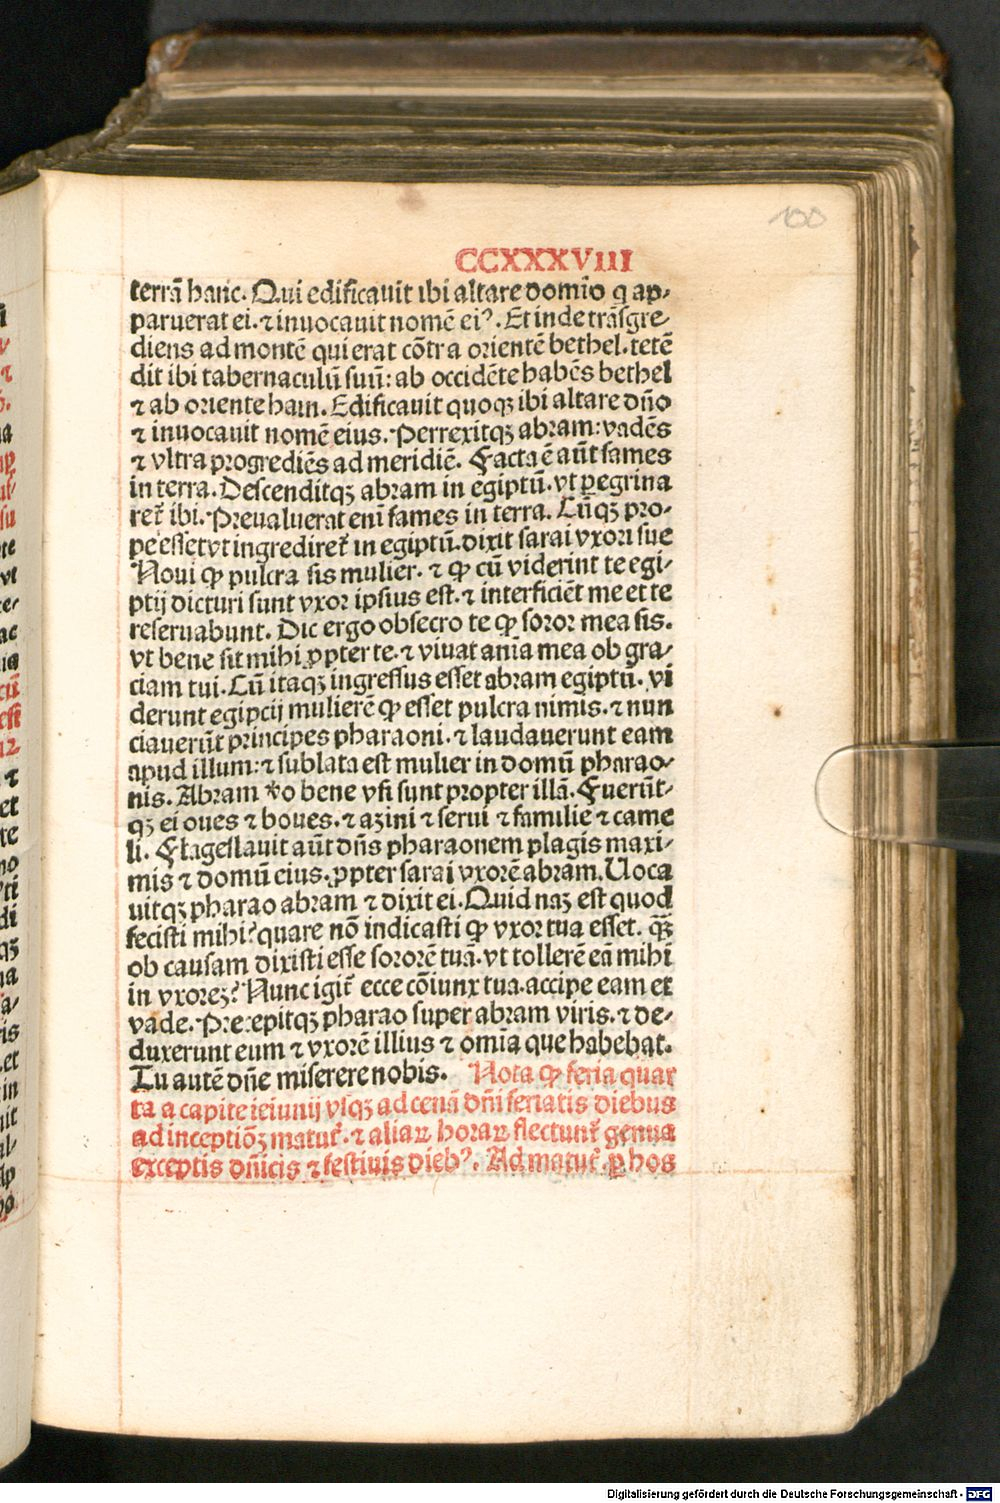 100
CCXXXVIII
terrã hanc. Qui edificauit ibi altare domĩo q ap⸗
paruerat ei. ⁊ inuocauit nomẽ eiꝰ. Et inde trãsgre⸗
diens ad montẽ qui erat cõtra orientẽ bethel. tetẽ
dit ibi tabernaculũ suũ: ab occidẽte habẽs bethel
⁊ ab oriente hain. Edificauit quoqꝫ ibi altare dño
⁊ inuocauit nomẽ eius. Perrexitqꝫ abram: vadẽs
⁊ vltra progrediẽs ad meridiẽ. Facta ẽ aũt fames
in terra. Descenditqꝫ abram in egiptũ. vt ꝑegrina
ret̃ ibi. Preualuerat enĩ fames in terra. Cũqꝫ pro⸗
pe esset vt ingrediret̃ in egiptũ. dixit sarai vxori sue
Noui ꝙ pulcra sis mulier. ⁊ ꝙ cũ viderint te egi⸗
ptij dicturi sunt vxor ipsius est. ⁊ interficiẽt me et te
reseruabunt. Dic ergo obsecro te ꝙ soror mea sis.
vt bene sit mihi ꝓpter te. ⁊ viuat anĩa mea ob gra⸗
ciam tui. Cũ itaqꝫ ingressus esset abram egiptũ. vi
derunt egipcij mulierẽ ꝙ esset pulcra nimis. ⁊ nun
ciauerũt principes pharaoni. ⁊ laudauerunt eam
apud illum: ⁊ sublata est mulier in domũ pharao⸗
nis. Abram v̊o bene vsi sunt propter illã. Fuerũt⸗
qꝫ ei oues ⁊ boues. ⁊ azini ⁊ serui ⁊ familie ⁊ came
li. Flagellauit aũt dñs pharaonem plagis maxi⸗
mis ⁊ domũ eius. ꝓpter sarai vxorẽ abram. Uoca
uitqꝫ pharao abram ⁊ dixit ei. Quid naꝫ est quod
fecisti mihi? quare nõ indicasti ꝙ vxor tua esset. q̃ꝫ
ob causam dixisti esse sororẽ tuã. vt tollerẽ eã mihi
in vxoreꝫ? Nunc igit̃ ecce cõiunx tua. accipe eam et
vade. Precepitqꝫ pharao super abram viris. ⁊ de⸗
duxerunt eum ⁊ vxorẽ illius ⁊ omĩa que habebat.
Tu autẽ dñe miserere nobis. Nota ꝙ feria quar
ta a capite ieiunij vsqꝫ ad cenã dñi feriatis diebus
ad inceptiõꝫ matut̃. ⁊ aliaꝝ horaꝝ flectunt̃ genua
exceptis dñicis ⁊ festiuis diebꝰ. Ad matut̃. ꝑ hos
Digitalisierung gefördert durch die Deutsche Forschungsgemeinschaft - DFG